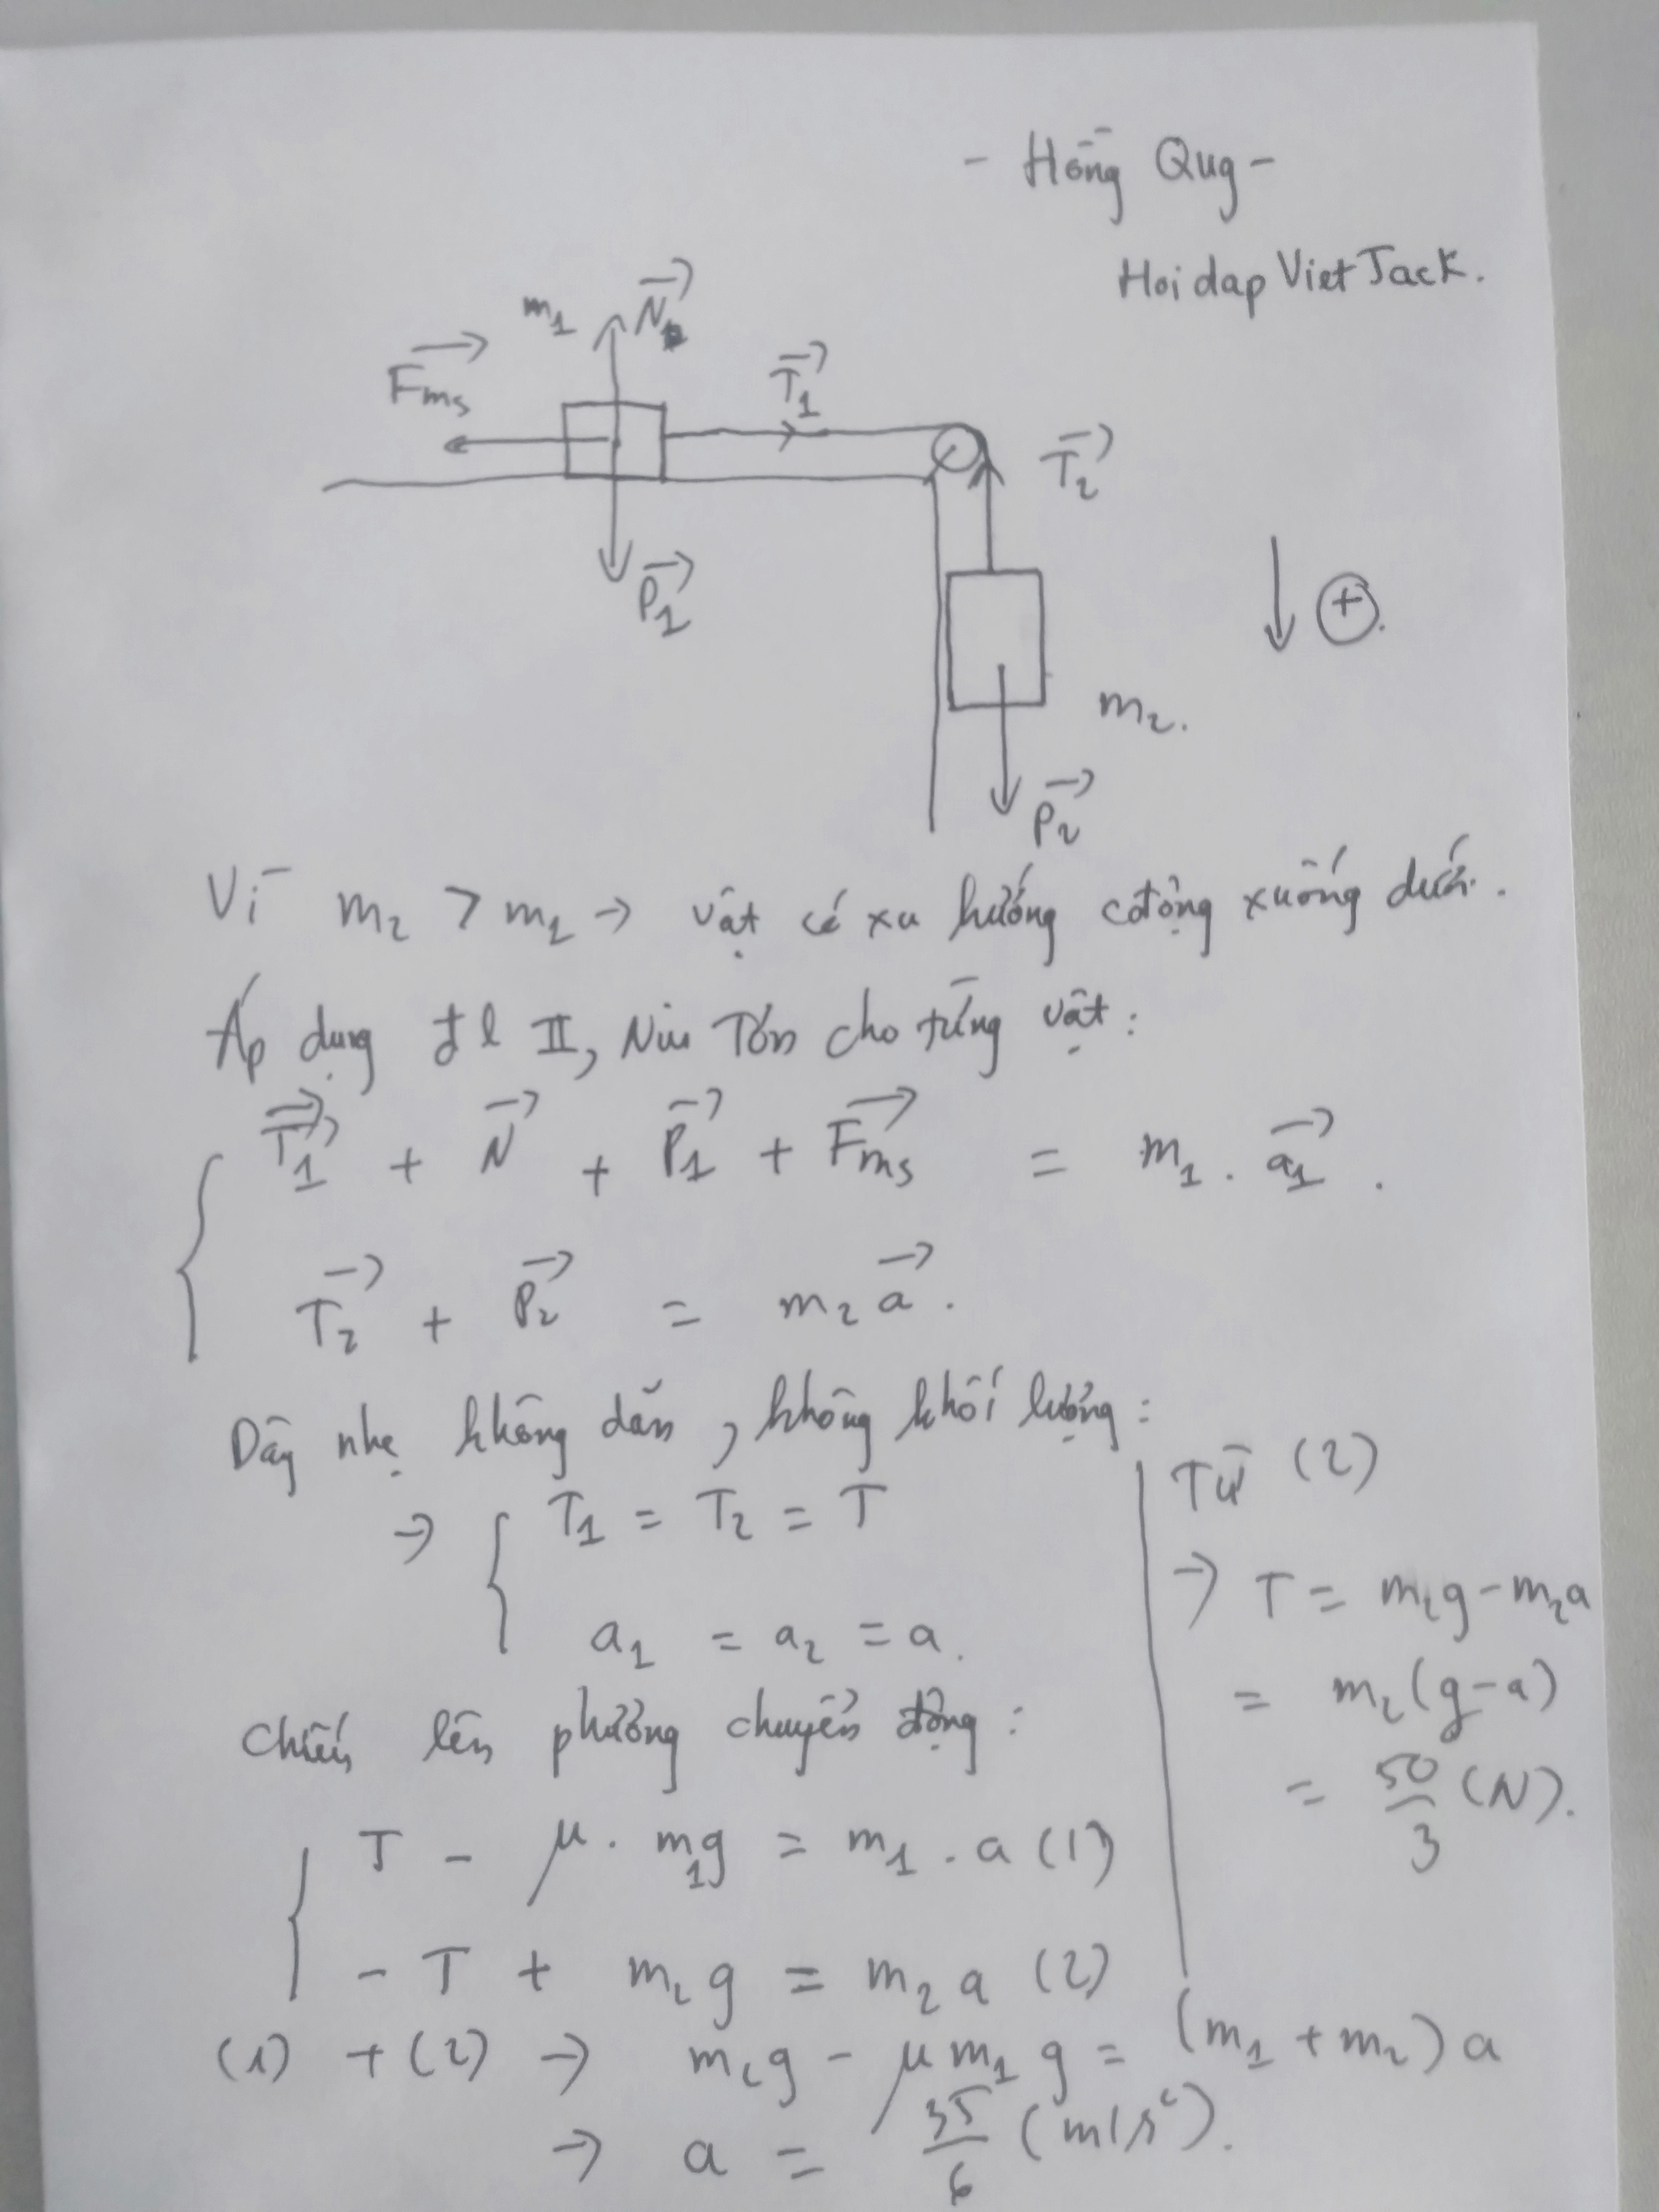 - Hồng Qug -
Hoidap VietJack.
m₁ N⃗
F⃗ms
T⃗₁
T⃗₂
P⃗₁
⊕.
m₂.
P⃗₂
Vì m₂ > m₁ → vật có xu hướng cđộng xuống dưới.
Áp dụng đl II, Niu Tơn cho từng vật:
T⃗₁ + N⃗ + P⃗₁ + F⃗ms = m₁. a⃗₁.
T⃗₂ + P⃗₂ = m₂ a⃗.
Dây nhẹ không dãn, không khối lượng:
→ { T₁ = T₂ = T
a₁ = a₂ = a.
Chiếu lên phương chuyển động:
T - μ. m₁g = m₁. a (1)
- T + m₂g = m₂a (2)
(1) + (2) → m₂g - μm₁g = (m₁ + m₂)a
→ a = 35/6 (m/s²).
Từ (2)
→ T = m₂g - m₂a
= m₂(g-a)
= 50/3 (N).